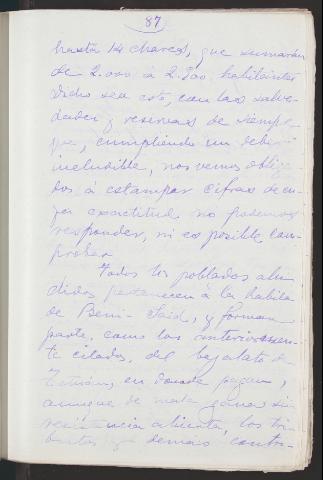 87
hasta 14 chozas, que sumarán
de 2.000 á 2.500 habitantes
Dicho sea esto, con las salve-
dades y reservas de siempre
que, cumpliendo un deber
ineludible, nos vemos obliga-
dos á estampar cifras de cu-
ya exactitud no podemos
responder, ni es posible com-
probar
Todos los poblados alu-
didos pertenecen á la kabila
de Beni-Said, y forman
parte, como los anteriormen-
te citados, del bajalato de
Tetuán, en donde pagan,
aunque de mala gana y sin
resistencia abierta, los tri-
butos y demás contri-